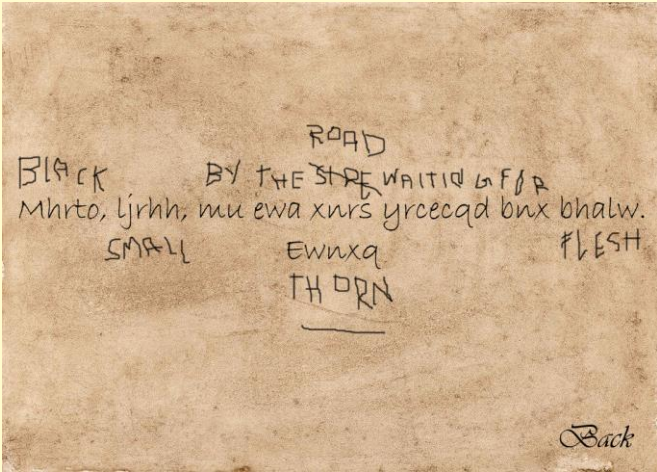 ROAD
BLACK BY THE WAITING FOR
Mhrto, ljrhh, mu ewa xnrs yrcecqd bnx bhalw.
SMALL Ewnxq FLESH
THORN
Back